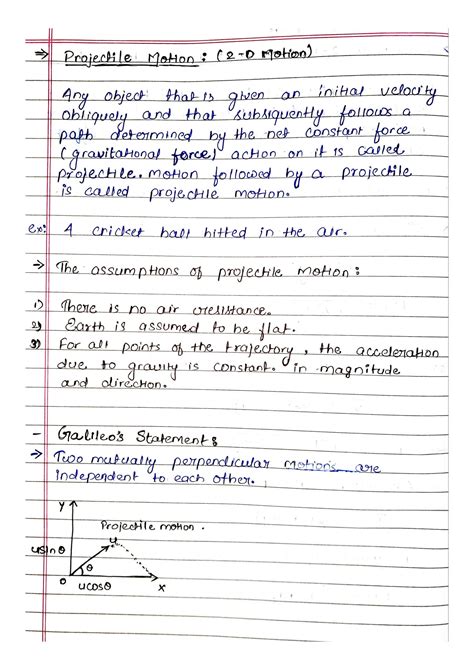 ⇒ Projectile Motion : (2-D Motion)
Any object that is given an initial velocity
obliquely and that subsiquently follows a
path determined by the net constant force
(gravitational force) action on it is called
projectile. motion followed by a projectile
is called projectile motion.
ex: A cricket ball hitted in the air.
→ The assumptions of projectile motion :
1) There is no air resistance.
2) Earth is assumed to be flat.
3) For all points of the trajectory, the acceleration
due to gravity is constant. in magnitude
and direction.
- Galileo's Statement :
→ Two mutually perpendicular motions are
independent to each other.
Y
Projectile motion.
u
usinθ
θ
O
ucosθ
x